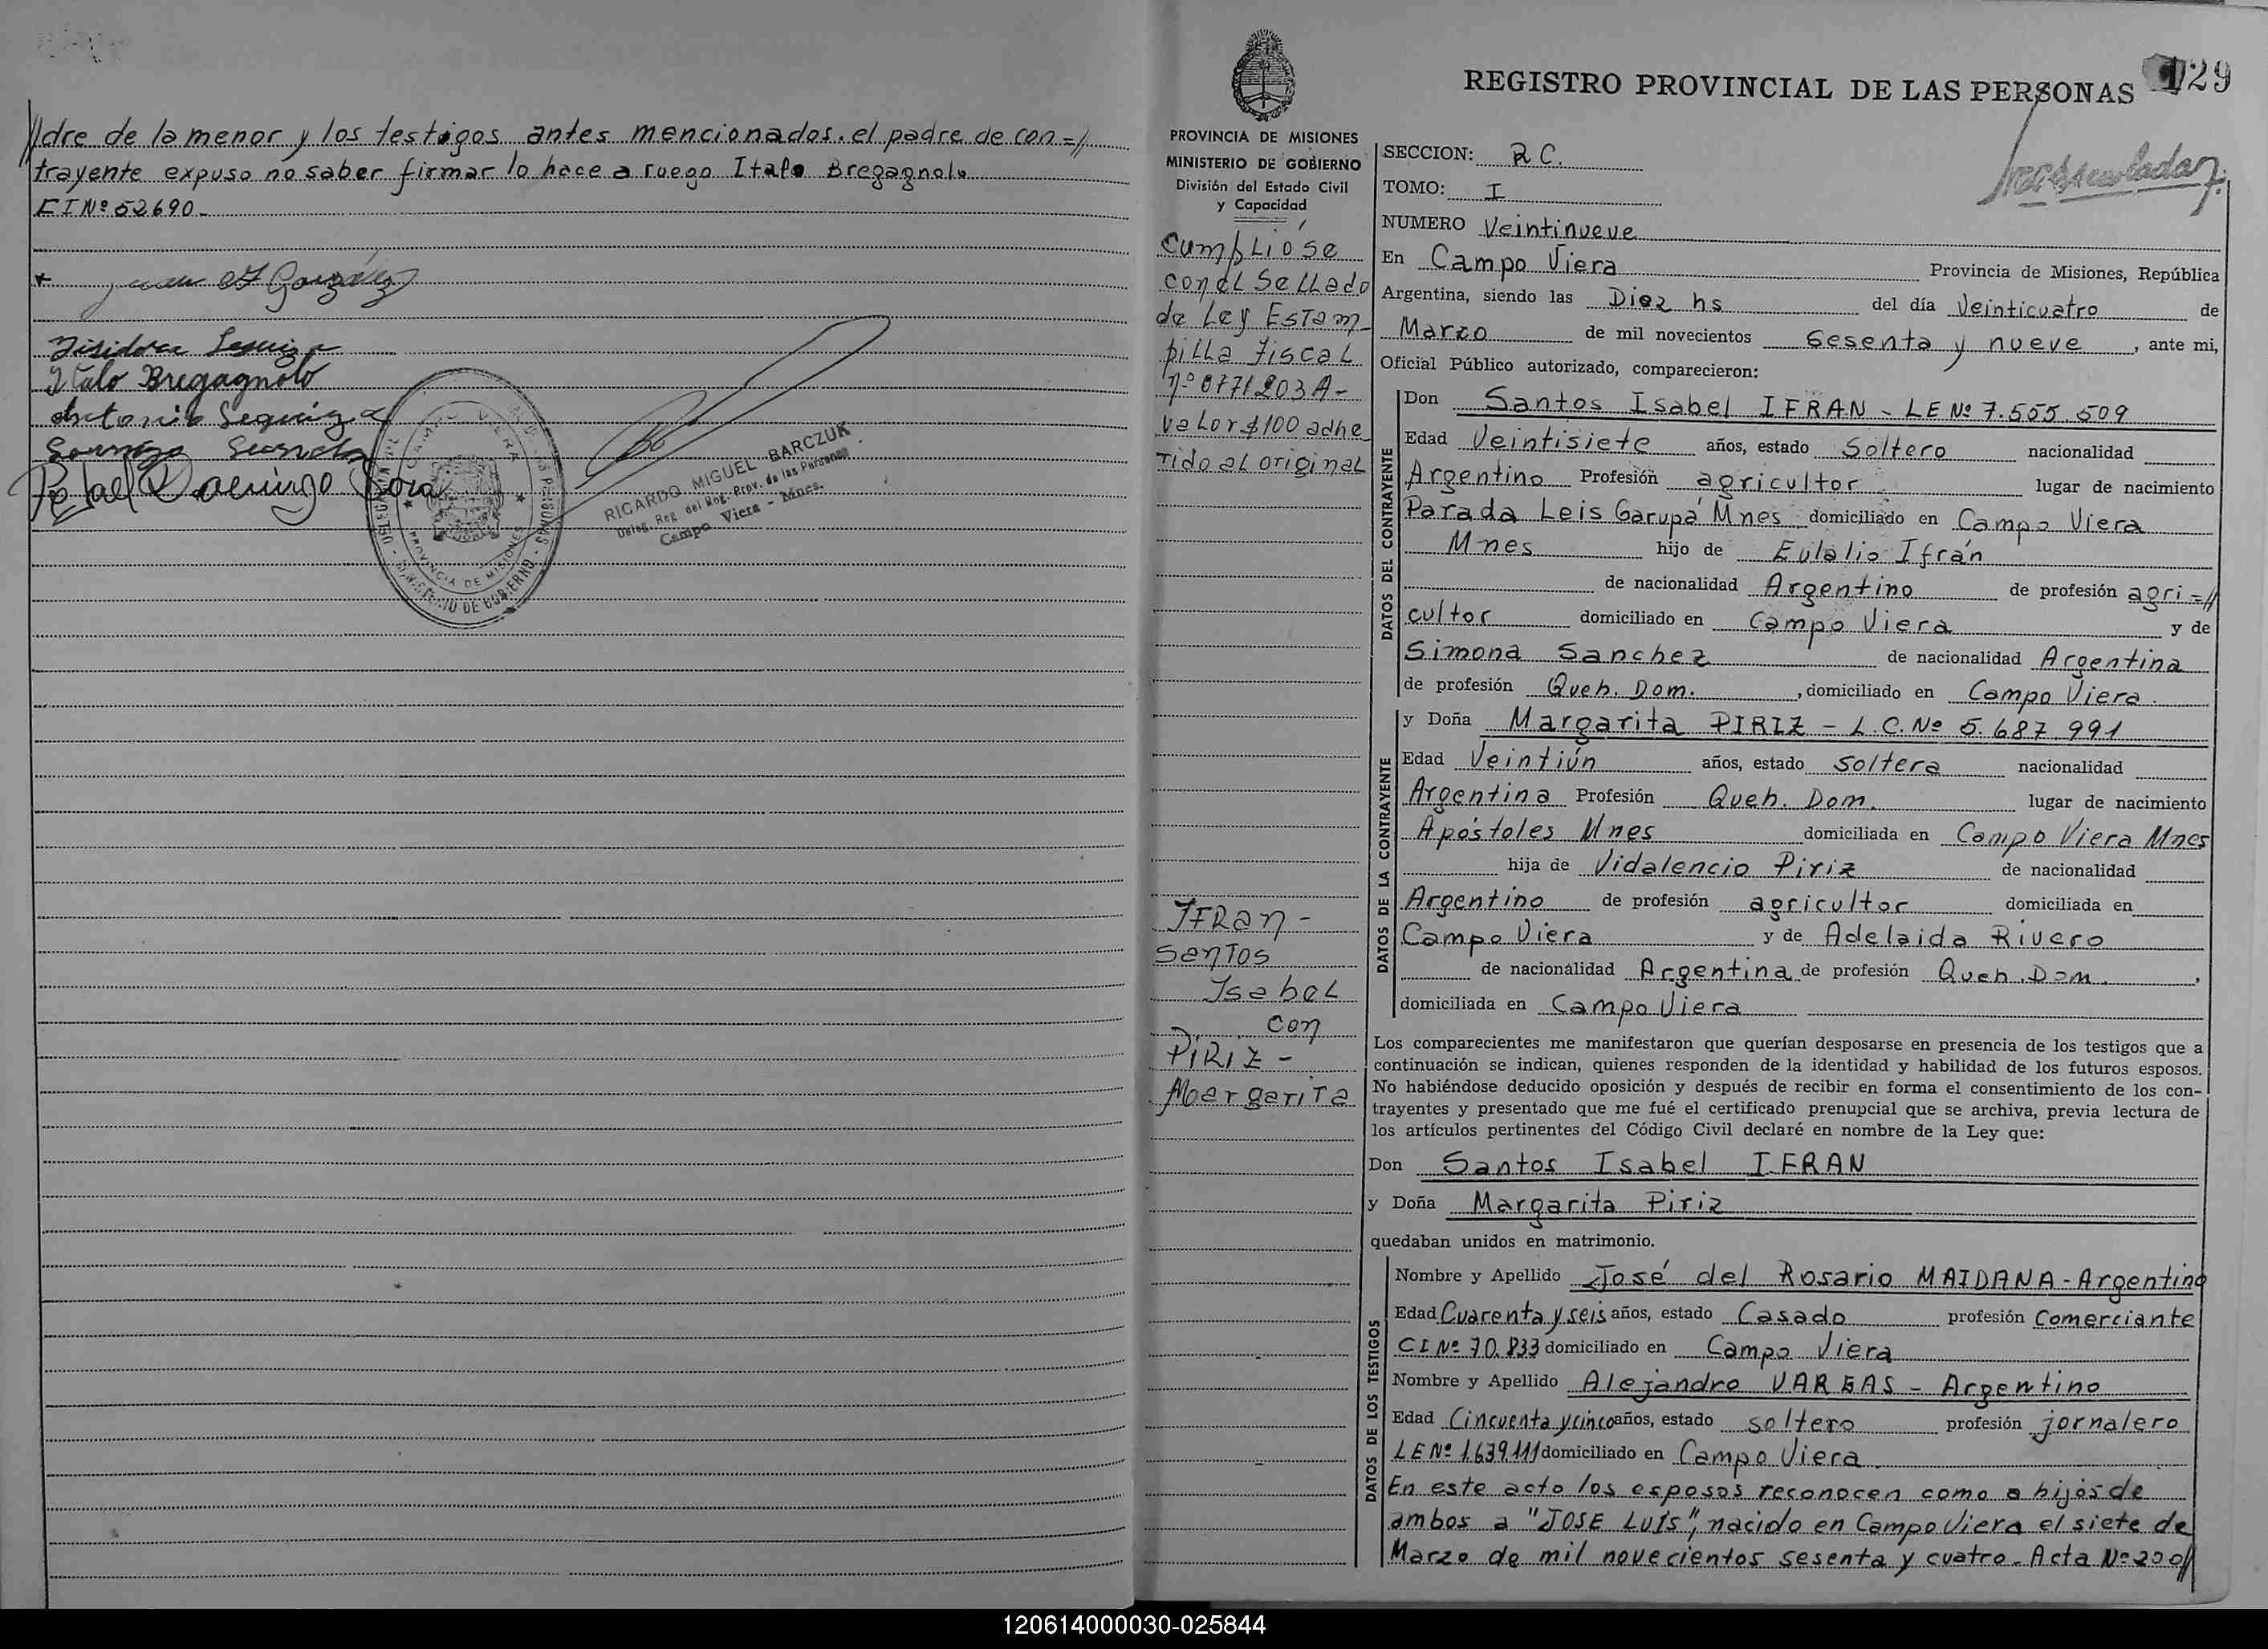 //dre de la menor y los testigos antes mencionados. el padre de con=//
trayente expuso no saber firmar lo hace a ruego Italo Bregagnolo
CI Nº 52690-
González
Italo Bregagnolo
Antonio
RICARDO MIGUEL BARCZUK
Deleg. Reg. del Reg. Prov. de las Personas
Campo Viera - Mnes.
CAMPO VIERA
PROVINCIA DE MISIONES
MINISTERIO DE GOBIERNO
REGISTRO PROVINCIAL DE LAS PERSONAS 129
PROVINCIA DE MISIONES
MINISTERIO DE GOBIERNO
División del Estado Civil
y Capacidad
Cumplióse
con el Sellado
de Ley Estam-
pilla Fiscal
nº 0771203 A-
valor $100 adhe
rido al original
IFRAN-
Santos
Isabel
con
PIRIZ-
Margarita
SECCION: R C.
TOMO: I
NUMERO Veintinueve
En Campo Viera Provincia de Misiones, República
Argentina, siendo las Diez hs del día Veinticuatro de
Marzo de mil novecientos sesenta y nueve, ante mi,
Oficial Público autorizado, comparecieron:
DATOS DEL CONTRAYENTE
Don Santos Isabel IFRAN - LE Nº 7.555.509
Edad Veintisiete años, estado Soltero nacionalidad
Argentino Profesión agricultor lugar de nacimiento
Parada Leis Garupá Mnes domiciliado en Campo Viera
Mnes hijo de Eulalio Ifrán
de nacionalidad Argentino de profesión agri=//
cultor domiciliado en Campo Viera y de
Simona Sanchez de nacionalidad Argentina
de profesión Queh. Dom. , domiciliado en Campo Viera.
DATOS DE LA CONTRAYENTE
y Doña Margarita PIRIZ - L.C. Nº 5.687.991
Edad Veintiún años, estado soltera nacionalidad
Argentina Profesión Queh. Dom. lugar de nacimiento
Apóstoles Mnes domiciliada en Campo Viera Mnes
hija de Vidalencio Piriz de nacionalidad
Argentino de profesión agricultor domiciliada en
Campo Viera y de Adelaida Rivero
de nacionalidad Argentina de profesión Queh. Dom. ,
domiciliada en Campo Viera
Los comparecientes me manifestaron que querían desposarse en presencia de los testigos que a
continuación se indican, quienes responden de la identidad y habilidad de los futuros esposos.
No habiéndose deducido oposición y después de recibir en forma el consentimiento de los con-
trayentes y presentado que me fué el certificado prenupcial que se archiva, previa lectura de
los artículos pertinentes del Código Civil declaré en nombre de la Ley que:
Don Santos Isabel IFRAN
y Doña Margarita Piriz
quedaban unidos en matrimonio.
DATOS DE LOS TESTIGOS
Nombre y Apellido José del Rosario MAIDANA - Argentino
Edad Cuarenta y seis años, estado Casado profesión Comerciante
CI Nº 70.833 domiciliado en Campo Viera
Nombre y Apellido Alejandro VARGAS - Argentino
Edad Cincuenta y cinco años, estado soltero profesión jornalero
LE Nº 1.639.111 domiciliado en Campo Viera.
En este acto los esposos reconocen como a hijos de
ambos a "JOSE LUIS", nacido en Campo Viera el siete de
Marzo de mil novecientos sesenta y cuatro - Acta Nº 200//
120614000030-025844